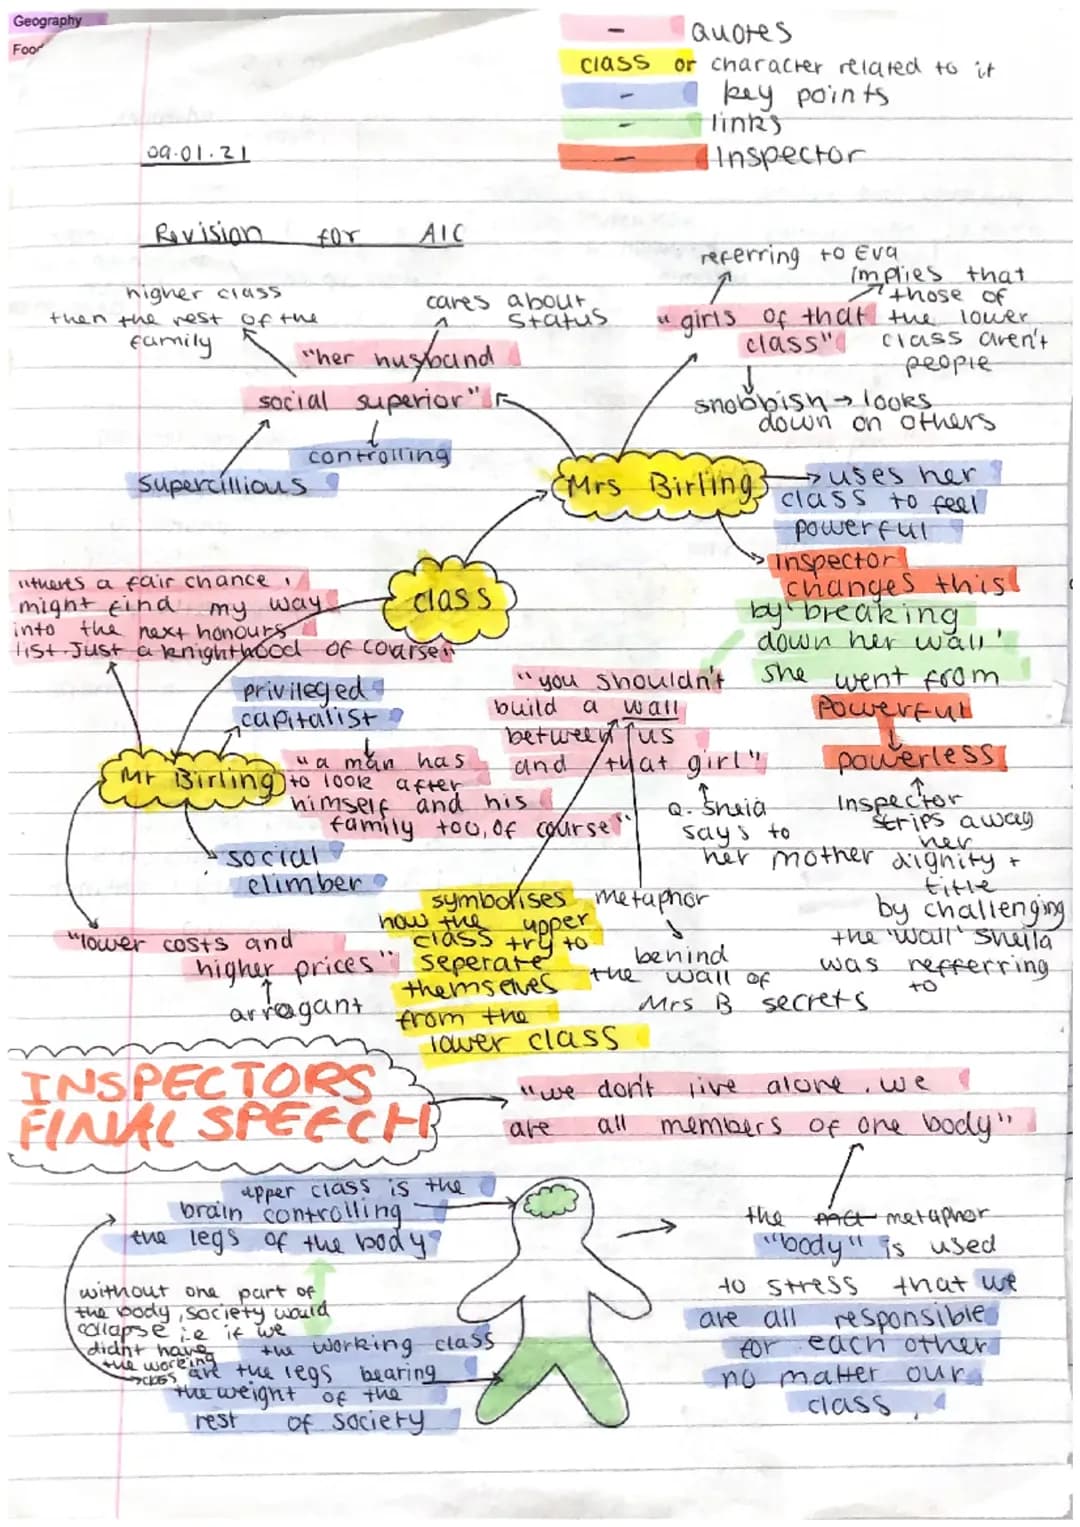 Geography
Food
- quotes
class or character related to it
- key points
- links
- Inspector
09.01.21
Revision for AIC
higher class
then the rest of the
family
cares about
status
"her husband
social superior"
controlling
supercillious
referring to Eva
"girls of that
class"
implies that
those of
the lower
class aren't
people
snobbish → looks
down on others
Mrs Birling
uses her
class to feel
powerful
Inspector
changes this
by 'breaking
down her wall'
she went from
powerful
powerless
Inspector
strips away
her
dignity +
title
by challenging
the 'wall' Sheila
was refferring
to
class
"theres a fair chance i
might find my way
into the next honours
list. Just a knighthood of course"
privileged
capitalist
Mr Birling
"a man has
to look after
himself and his
family too, of course"
social
climber
"lower costs and
higher prices"
arragant
"you shouldn't
build a wall
between us
and that girl"
Q. Sheia
says to
her mother
symbolises
how the upper
class try to
seperate
themselves
from the
lower class
metaphor
behind
the wall of
Mrs B secrets
INSPECTORS
FINAL SPEECH
"we don't live alone. we
are all members of one body"
upper class is the
brain controlling
the legs of the body
without one part of
the body, society would
collapse i.e if we
didnt have
the working
class
the working class
are the legs bearing
the weight of the
rest of society
the metaphor
"body" is used
to stress that we
are all responsible
for each other
no matter our
class.